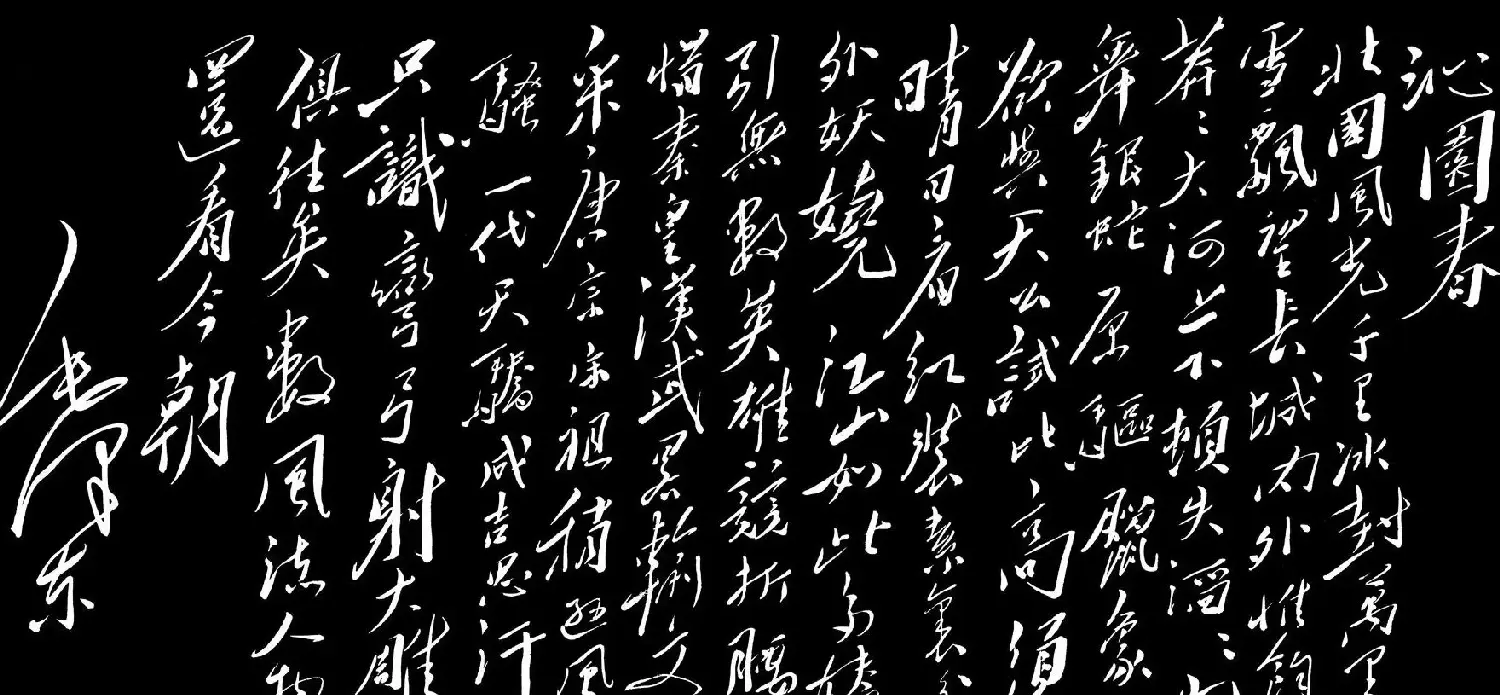 沁園春
北國風光千里冰封萬里
雪飄望長城內外惟餘
莽〻大河上下頓失滔〻
舞銀蛇原驅臘象
欲與天公試比高須
晴日看紅裝素裹分
外妖嬈江山如此多嬌
引無數英雄競折腰
惜秦皇漢武略輸文
采唐宗宋祖稍遜風
騷一代天驕成吉思汗
只識彎弓射大雕
俱往矣數風流人物
還看今朝
毛澤東